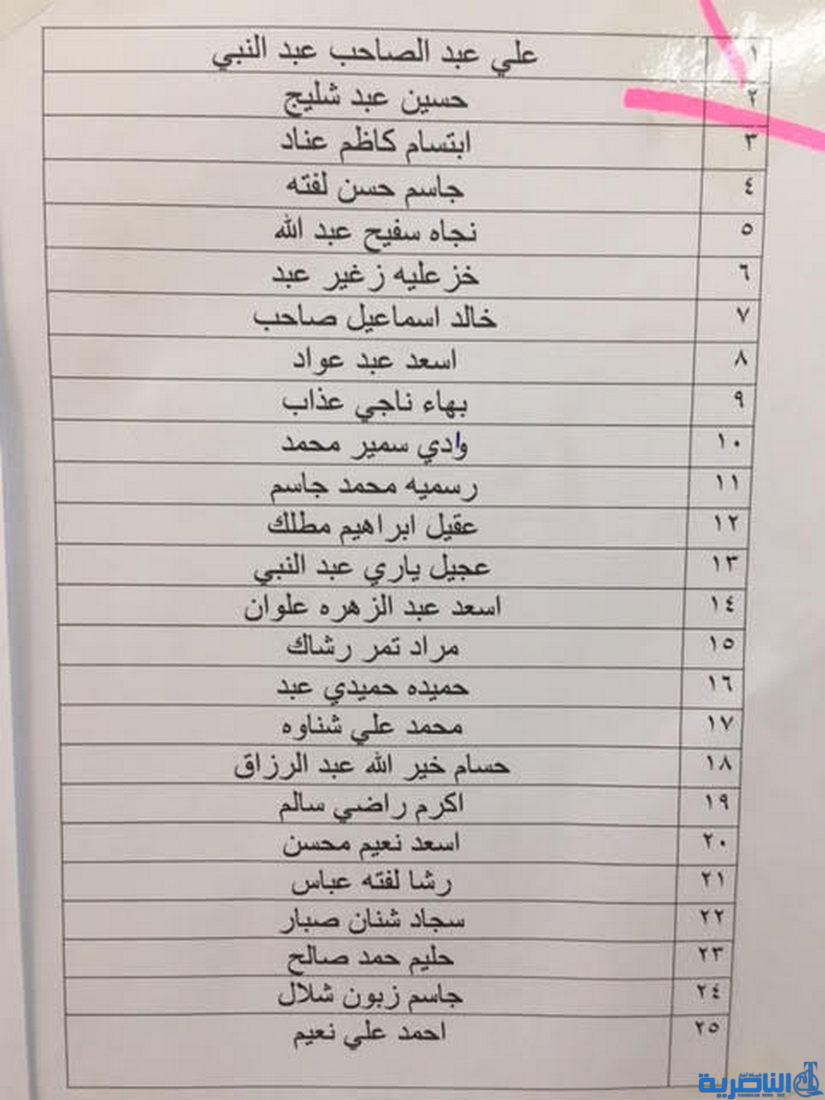 ١ علي عبد الصاحب عبد النبي
٢ حسين عبد شليج
٣ ابتسام كاظم عناد
٤ جاسم حسن لفته
٥ نجاه سفيح عبد الله
٦ خزعليه زغير عبد
٧ خالد اسماعيل صاحب
٨ اسعد عبد عواد
٩ بهاء ناجي عذاب
١٠ وادي سمير محمد
١١ رسميه محمد جاسم
١٢ عقيل ابراهيم مطلك
١٣ عجيل ياري عبد النبي
١٤ اسعد عبد الزهره علوان
١٥ مراد تمر رشاك
١٦ حميده حميدي عبد
١٧ محمد علي شناوه
١٨ حسام خير الله عبد الرزاق
١٩ اكرم راضي سالم
٢٠ اسعد نعيم محسن
٢١ رشا لفته عباس
٢٢ سجاد شنان صبار
٢٣ حليم حمد صالح
٢٤ جاسم زبون شلال
٢٥ احمد علي نعيم
الناصرية